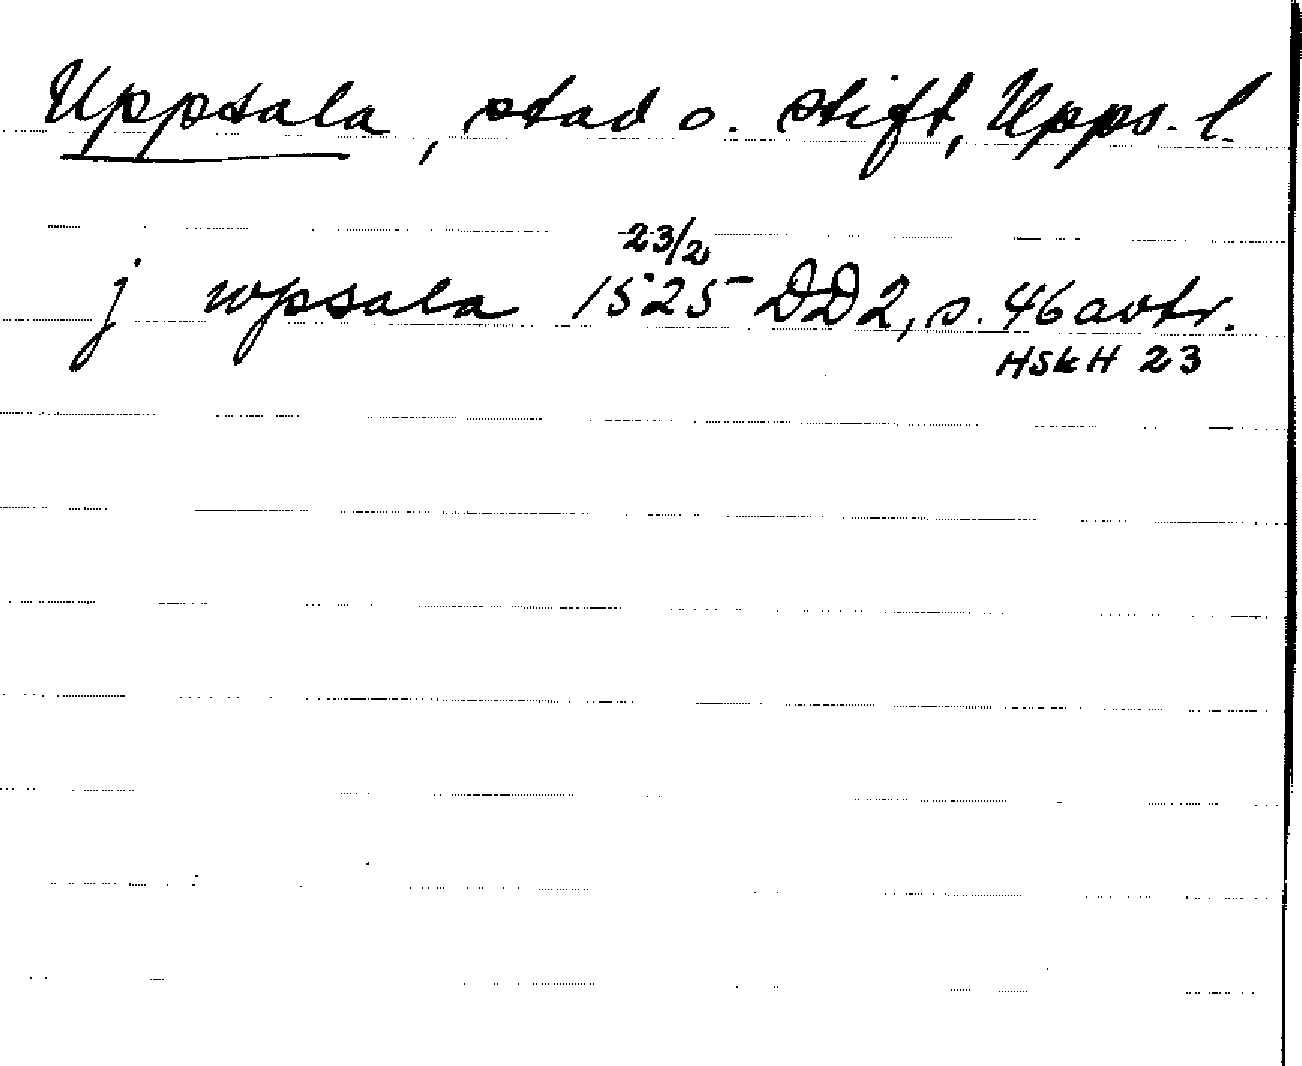 Uppsala, stad o. stift, Upps. l.
23/2
j wpsala 1525 DD2, s. 46 avtr.
HSkH 23